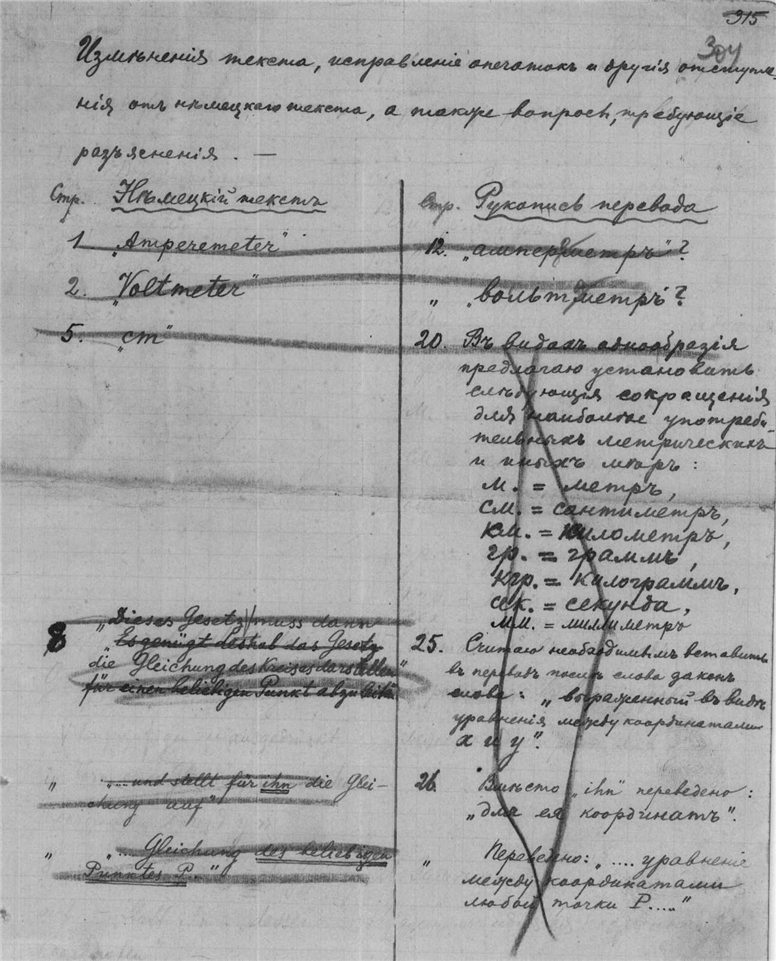 315
304
Измѣненія текста, исправленіе опечатокъ и другія отступле-
нія отъ нѣмецкаго текста, а также вопросы, требующіе
разъясненія. —
Стр. Нѣмецкій текстъ
1 „Amperemeter"
2. „Voltmeter"
5. „cm"
8 „Dieses Gesetz muss dann
„Es genügt deshalb das Gesetz
die Gleichung des Kreises darstellen"
für einen beliebigen Punkt abzuleiten
„ „... und stellt für ihn die Glei-
chung auf"
„ „... Gleichung des beliebigen
Punktes P..."
Стр. Рукопись перевода
12. „амперметръ"?
„ „вольтметръ"?
20. Въ видахъ однообразія
предлагаю установить
слѣдующія сокращенія
для наиболѣе употреби-
тельныхъ метрическихъ
и иныхъ мѣръ:
м. = метръ,
см. = сантиметръ,
км. = километръ,
гр. = граммъ,
кгр. = килограммъ,
сек. = секунда,
мм. = миллиметръ
25. Считаю необходимымъ вставить
въ переводъ послѣ слова законъ
слова: „выраженный въ видѣ
уравненія между координатами
x и y".
26. Вмѣсто „ihn" переведено:
„для ея координатъ".
„ Переведено: „.... уравненіе
между координатами
любой точки P....."